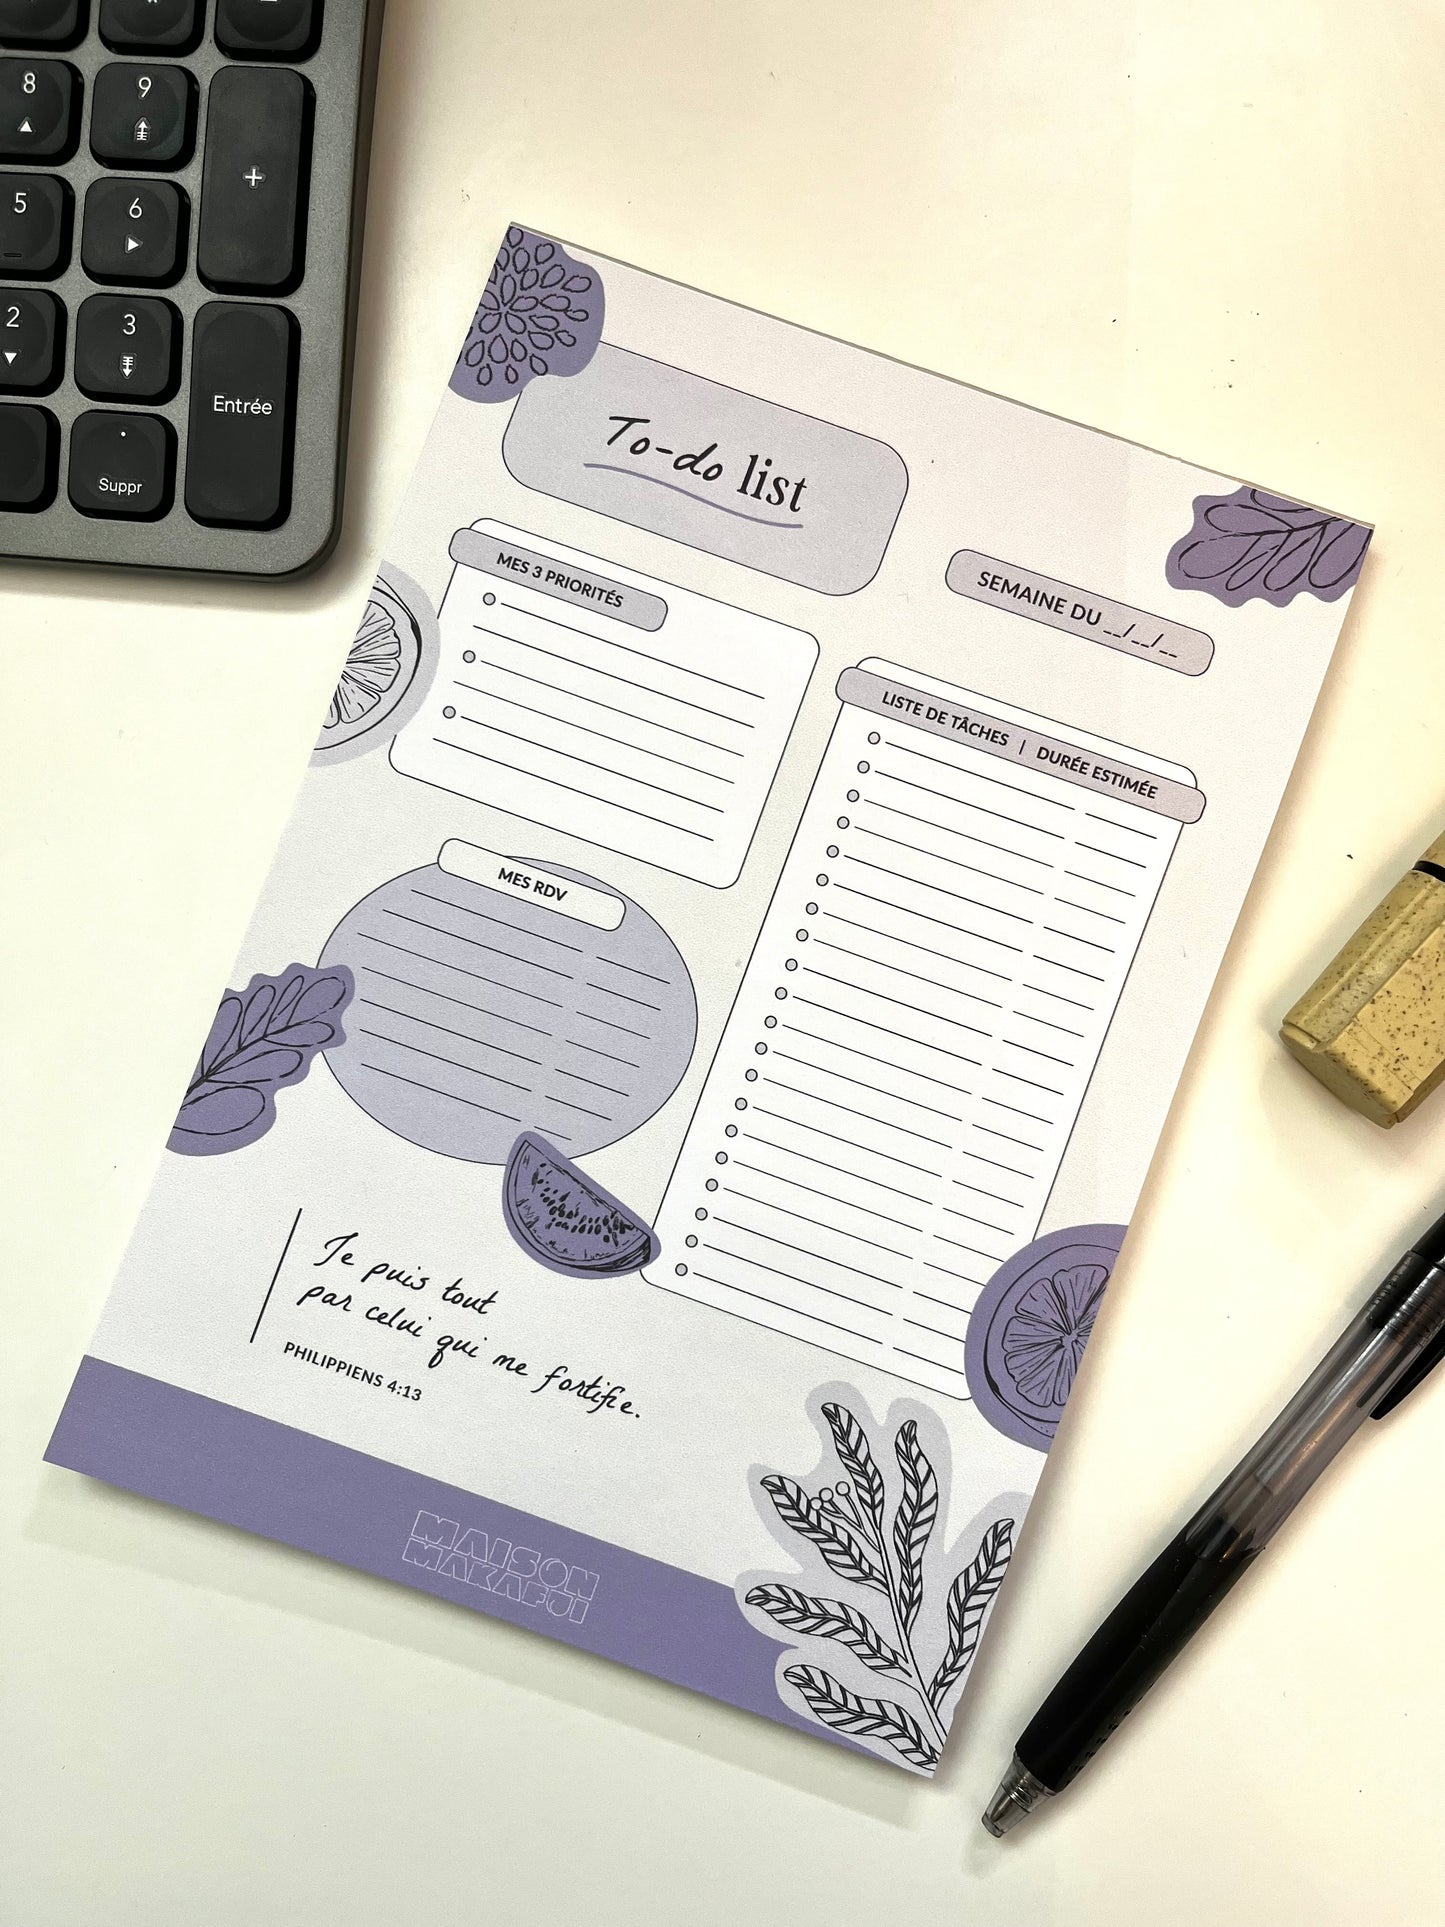 8
9
+
5
6
2
3
Entrée
.
Suppr
To-do list
SEMAINE DU __/__/__
MES 3 PRIORITÉS
LISTE DE TÂCHES | DURÉE ESTIMÉE
MES RDV
Je puis tout
par celui qui me fortifie.
PHILIPPIENS 4:13
MAISON
MAKAFUI